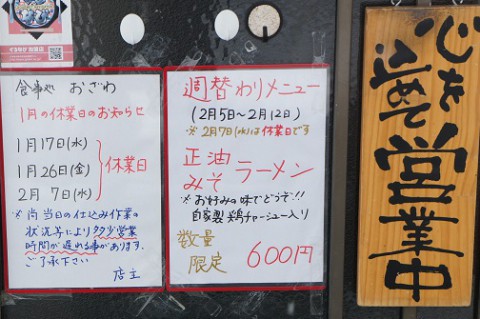 食事処 おざわ
1月の休業日のお知らせ
1月17日(水)
1月26日(金)
2月 7日(水)
休業日
※尚 当日の仕込み作業の
状況等により多少営業
時間が遅れる事があります。
ご了承下さい
店主
週替わりメニュー
(2月5日〜2月12日)
※2月7日(水)は休業日です
正油
みそ
ラーメン
※お好みの味でどうぞ!!
自家製 鶏チャーシュー入り
数量
限定
600円
心を
込めて
営業中